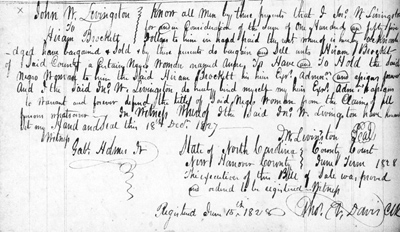 John W. Livingston } Know all Men by these presents that I Jno. W Livingston
To for and in Consideration of the Sum of One Hundred and fifty five
Hiram Brockett Dollars to him in hand paid the rec't where of is hereby acknowl
edged have bargained & Sold & by these presents do bargain and Sell unto Hiram Brockett
of Said County a Certain Negro Woman named To Have and To Hold the Said
Negro Woman to him the Said Hiram Brockett his heirs Exrs Admrs and assigns forever
And I the Said Jno. W. Livingston do hereby bind myself my heirs Exrs Admrs & assigns
to Warrant and forever defend the title of Said Negro Woman from the Claims of all
persons whatsoever In Witness Whereof I the Said Jno W. Livingston have hereunto
set my Hand and Seal this 18th Decr. 1827
Witness J W Livingston Seal
Gabl Holmes Jr State of North Carolina } County Court
New Hanover County } June Term 1828
The execution of this Bill of Sale was proved
and ordered to be registered Witness
Registered June 15th 1828 Thos. F. Davis Clk